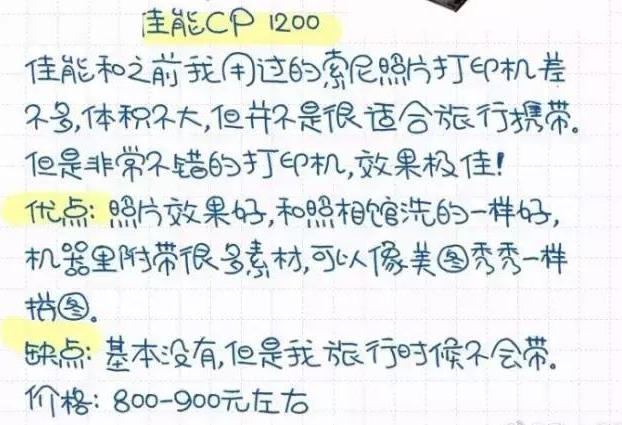 佳能CP 1200
佳能和之前我用过的索尼照片打印机差
不多,体积不大,但并不是很适合旅行携带。
但是非常不错的打印机,效果极佳!
优点:照片效果好,和照相馆洗的一样好,
机器里附带很多素材,可以像美图秀秀一样
拼图。
缺点:基本没有,但是我旅行时候不会带。
价格:800-900元左右